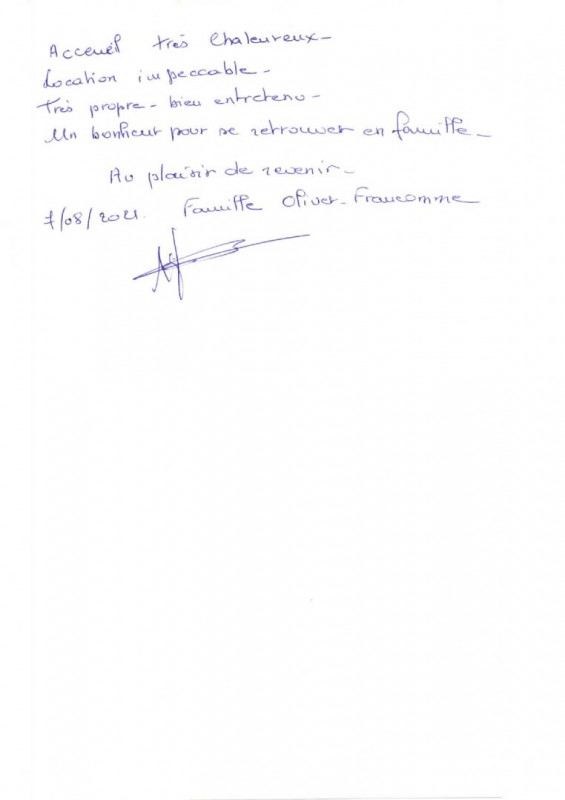 Acceuil très Chaleureux -
Location impeccable -
très propre - bien entretenu -
Un bonheur pour se retrouver en famille -
Au plaisir de revenir -
7/08/2021. Famille Olivet-Francomme